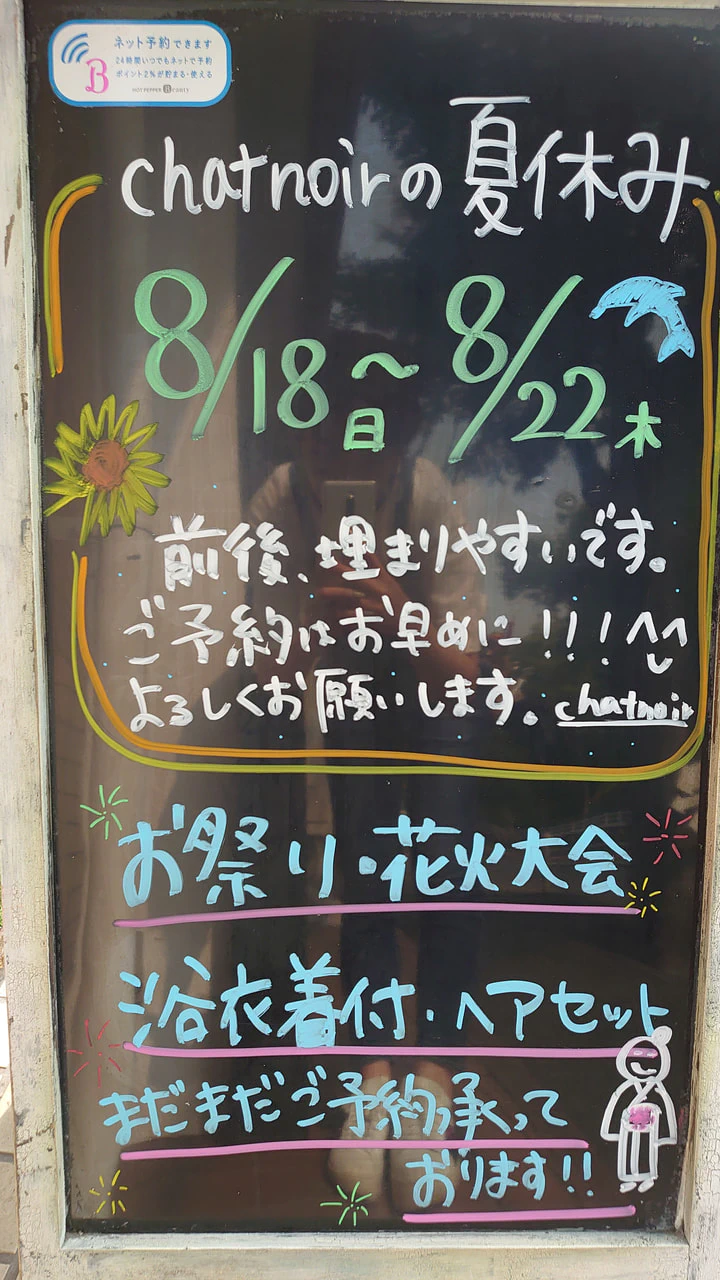 ネット予約できます
24時間いつでもネットで予約
ポイント2%が貯まる・使える
HOT PEPPER Beauty
chatnoirの夏休み
8/18日〜8/22木
前後、埋まりやすいです。
ご予約はお早めに!!!^^
よろしくお願いします。chatnoir
お祭り・花火大会
浴衣着付・ヘアセット
まだまだご予約承って
おります!!